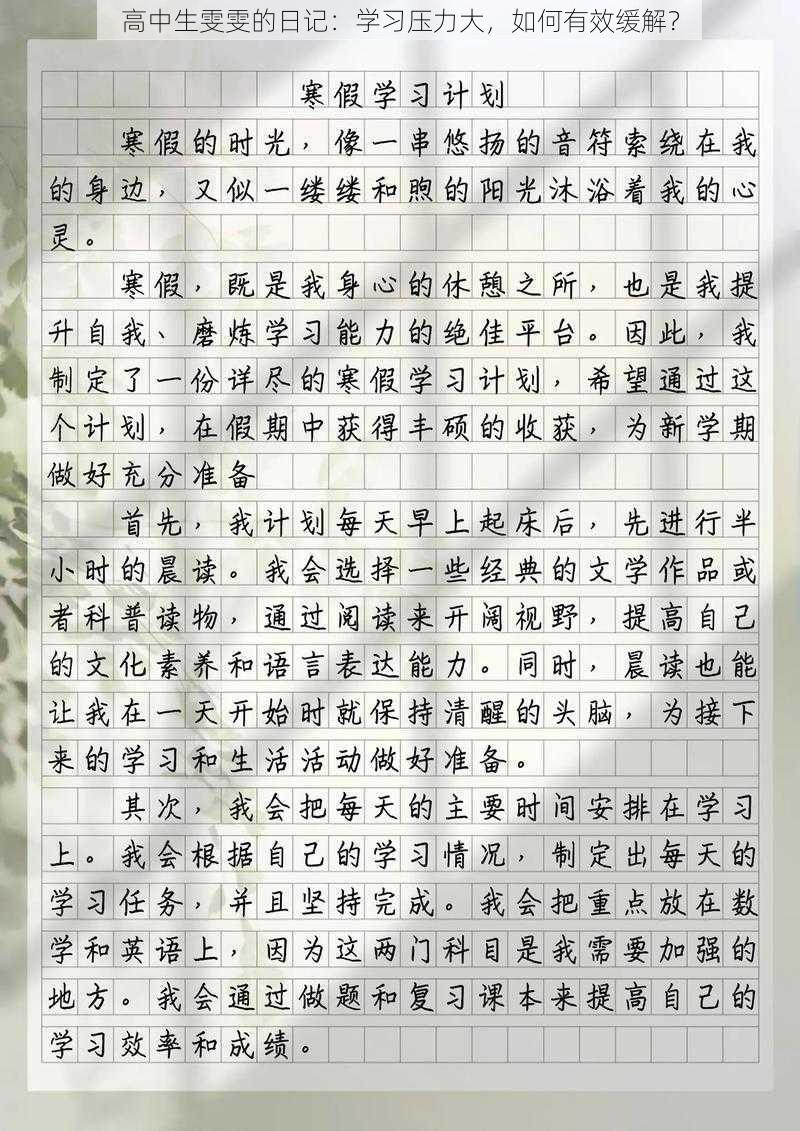 高中生雯雯的日记：学习压力大，如何有效缓解？
寒假学习计划
寒假的时光，像一串悠扬的音符索绕在我
的身边，又似一缕缕和煦的阳光沐浴着我的心
灵。
寒假，既是我身心的休憩之所，也是我提
升自我、磨炼学习能力的绝佳平台。因此，我
制定了一份详尽的寒假学习计划，希望通过这
个计划，在假期中获得丰硕的收获，为新学期
做好充分准备
首先，我计划每天早上起床后，先进行半
小时的晨读。我会选择一些经典的文学作品或
者科普读物，通过阅读来开阔视野，提高自己
的文化素养和语言表达能力。同时，晨读也能
让我在一天开始时就保持清醒的头脑，为接下
来的学习和生活活动做好准备。
其次，我会把每天的主要时间安排在学习
上。我会根据自己的学习情况，制定出每天的
学习任务，并且坚持完成。我会把重点放在数
学和英语上，因为这两门科目是我需要加强的
地方。我会通过做题和复习课本来提高自己的
学习效率和成绩。